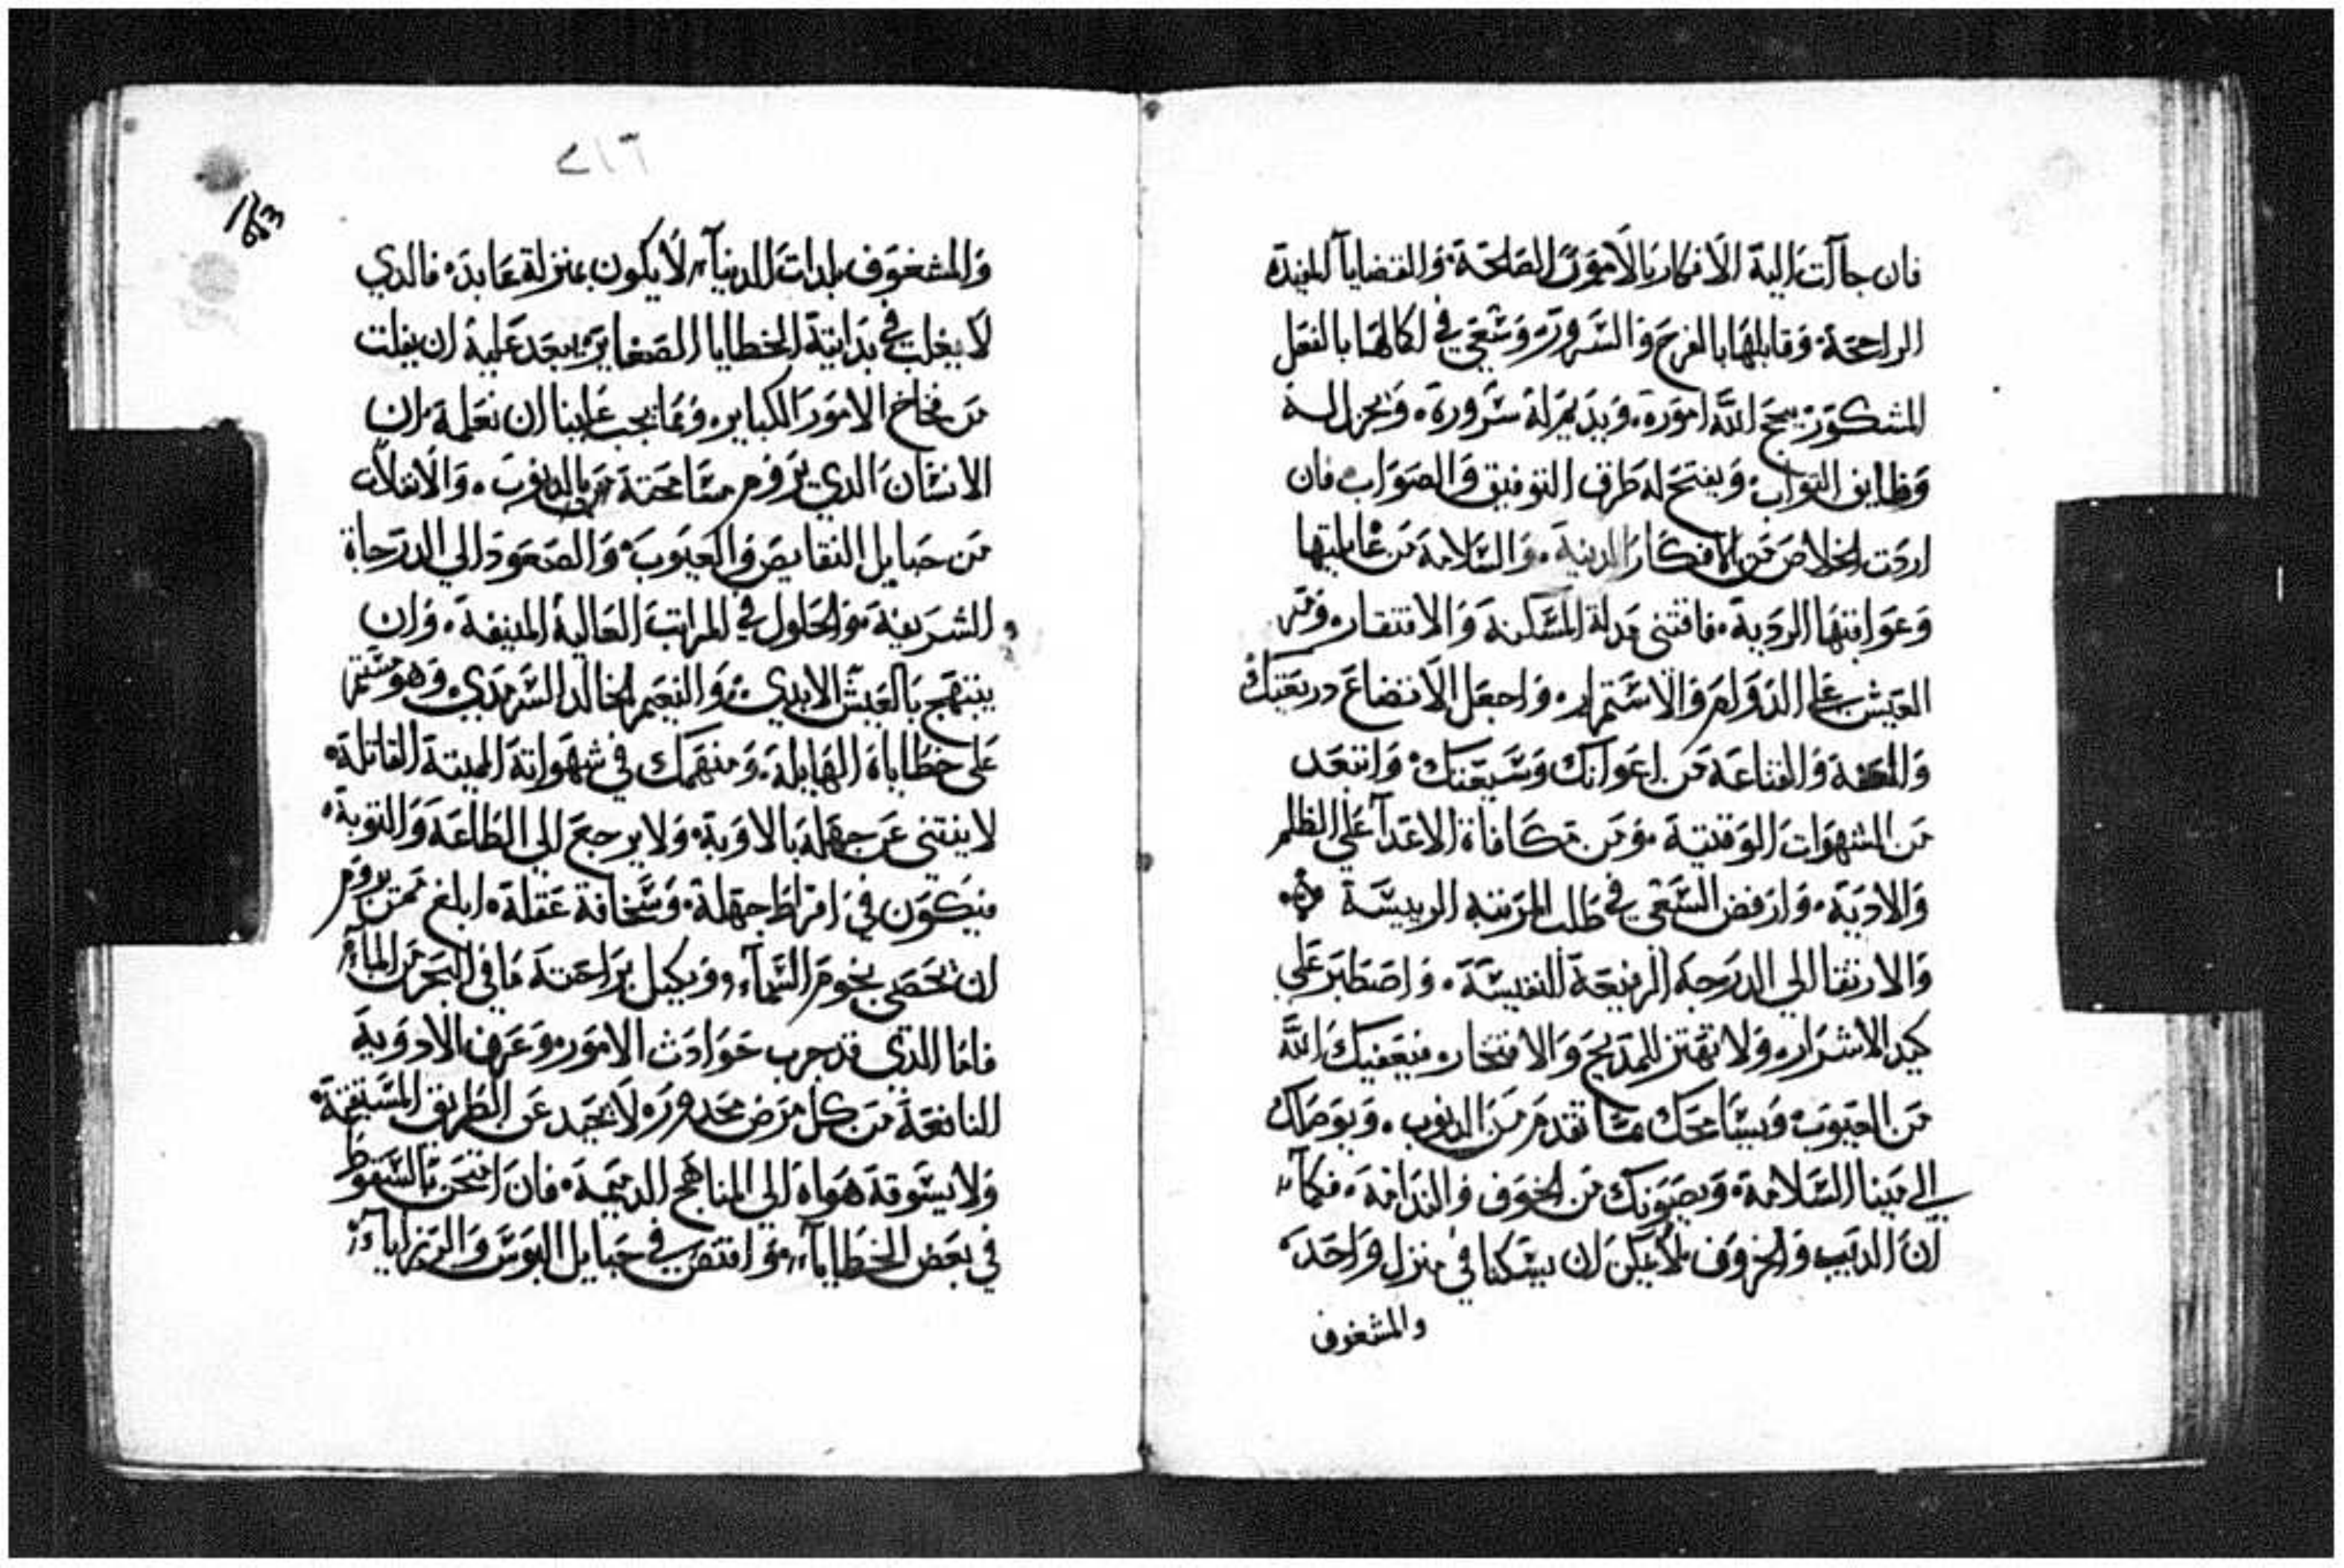 فان جاآت الية الافكار بالامور الصالحة، والقضايا المفيدة
الراجحة، وقابلها بالفرح والسرور، وسعي في اكمالها بالفعل
المشكور، ينجح الله امورة، ويديم له سرورة، ويجزل له
وظايف التواب، ويفتح له طرق التوفيق والصواب، فان
اردت الخلاص من الافكار الدنية، والسلامة من غايلتها
وعواقبها الردية، فاقتني مدلة المسكنة والافتقار، ومر
العيش علي الدوام والاستمرار، واجعل الاتضاع دريعتك
والعفة والقناعة من اعوانك وشيعتك، وابتعد
من الشهوات الوقتية، ومن مكافاة الاعدآ علي الظلم
والادية، وارفض السعي في طلب المرتبة الرييسة
والارتقا الي الدرجة الرفيعة النفيسة، واصطبر علي
كيد الاشرار، ولا تهتز للمديح والافتخار، فيعفيك الله
من العيوب، ويسامحك مما تقدم من الدنوب، ويوصلك
الي مينا السلامة، ويصونك من الخوف والندامة، فكما
ان الديب والخروف لا يمكن ان يسكنا في منزل واحد،
والمشغوف
٢١٦
163
والمشغوف بلدات الدنيآ، لا يكون بمنزلة عابد، فالدي
لا يغلب في بداية الخطايا الصغاير، يبعد علية ان يفلت
من فخاخ الامور الكباير، ومما يجب علينا ان نعلمة، ان
الانسان الدي يروم مسامحتة من الدنوب، والانفلات
من حبايل النقايص والعيوب، والصعود الي الدرجاة
الشريفة، والحلول في المراتب العالية المنيفة، وان
يبتهج بالعيش الابدي، والنعيم الخالد السرمدي، وهو مستمر
علي خطاياة الهايلة، ومنهمك في شهواتة المميتة القاتلة،
لا ينتني عن جهلة بالاوبة، ولا يرجع الي الطاعة والتوبة،
فيكون في افراط جهلة، وسخافة عقلة، ابلغ ممن يروم
ان يحصي نجوم السمآ، ويكيل براحتة ما في البحر من المآ،
فاما الدي قد جرب حوادث الامور، وعرف الادوية
النافعة من كل مرض محدور، لا يحيد عن الطريق المستقيمة،
ولا يسوقة هواه الي المناهج الدميمة، فان امتحن بالسقوط
في بعض الخطايا، واقتنص في حبايل البوس والرزايا،